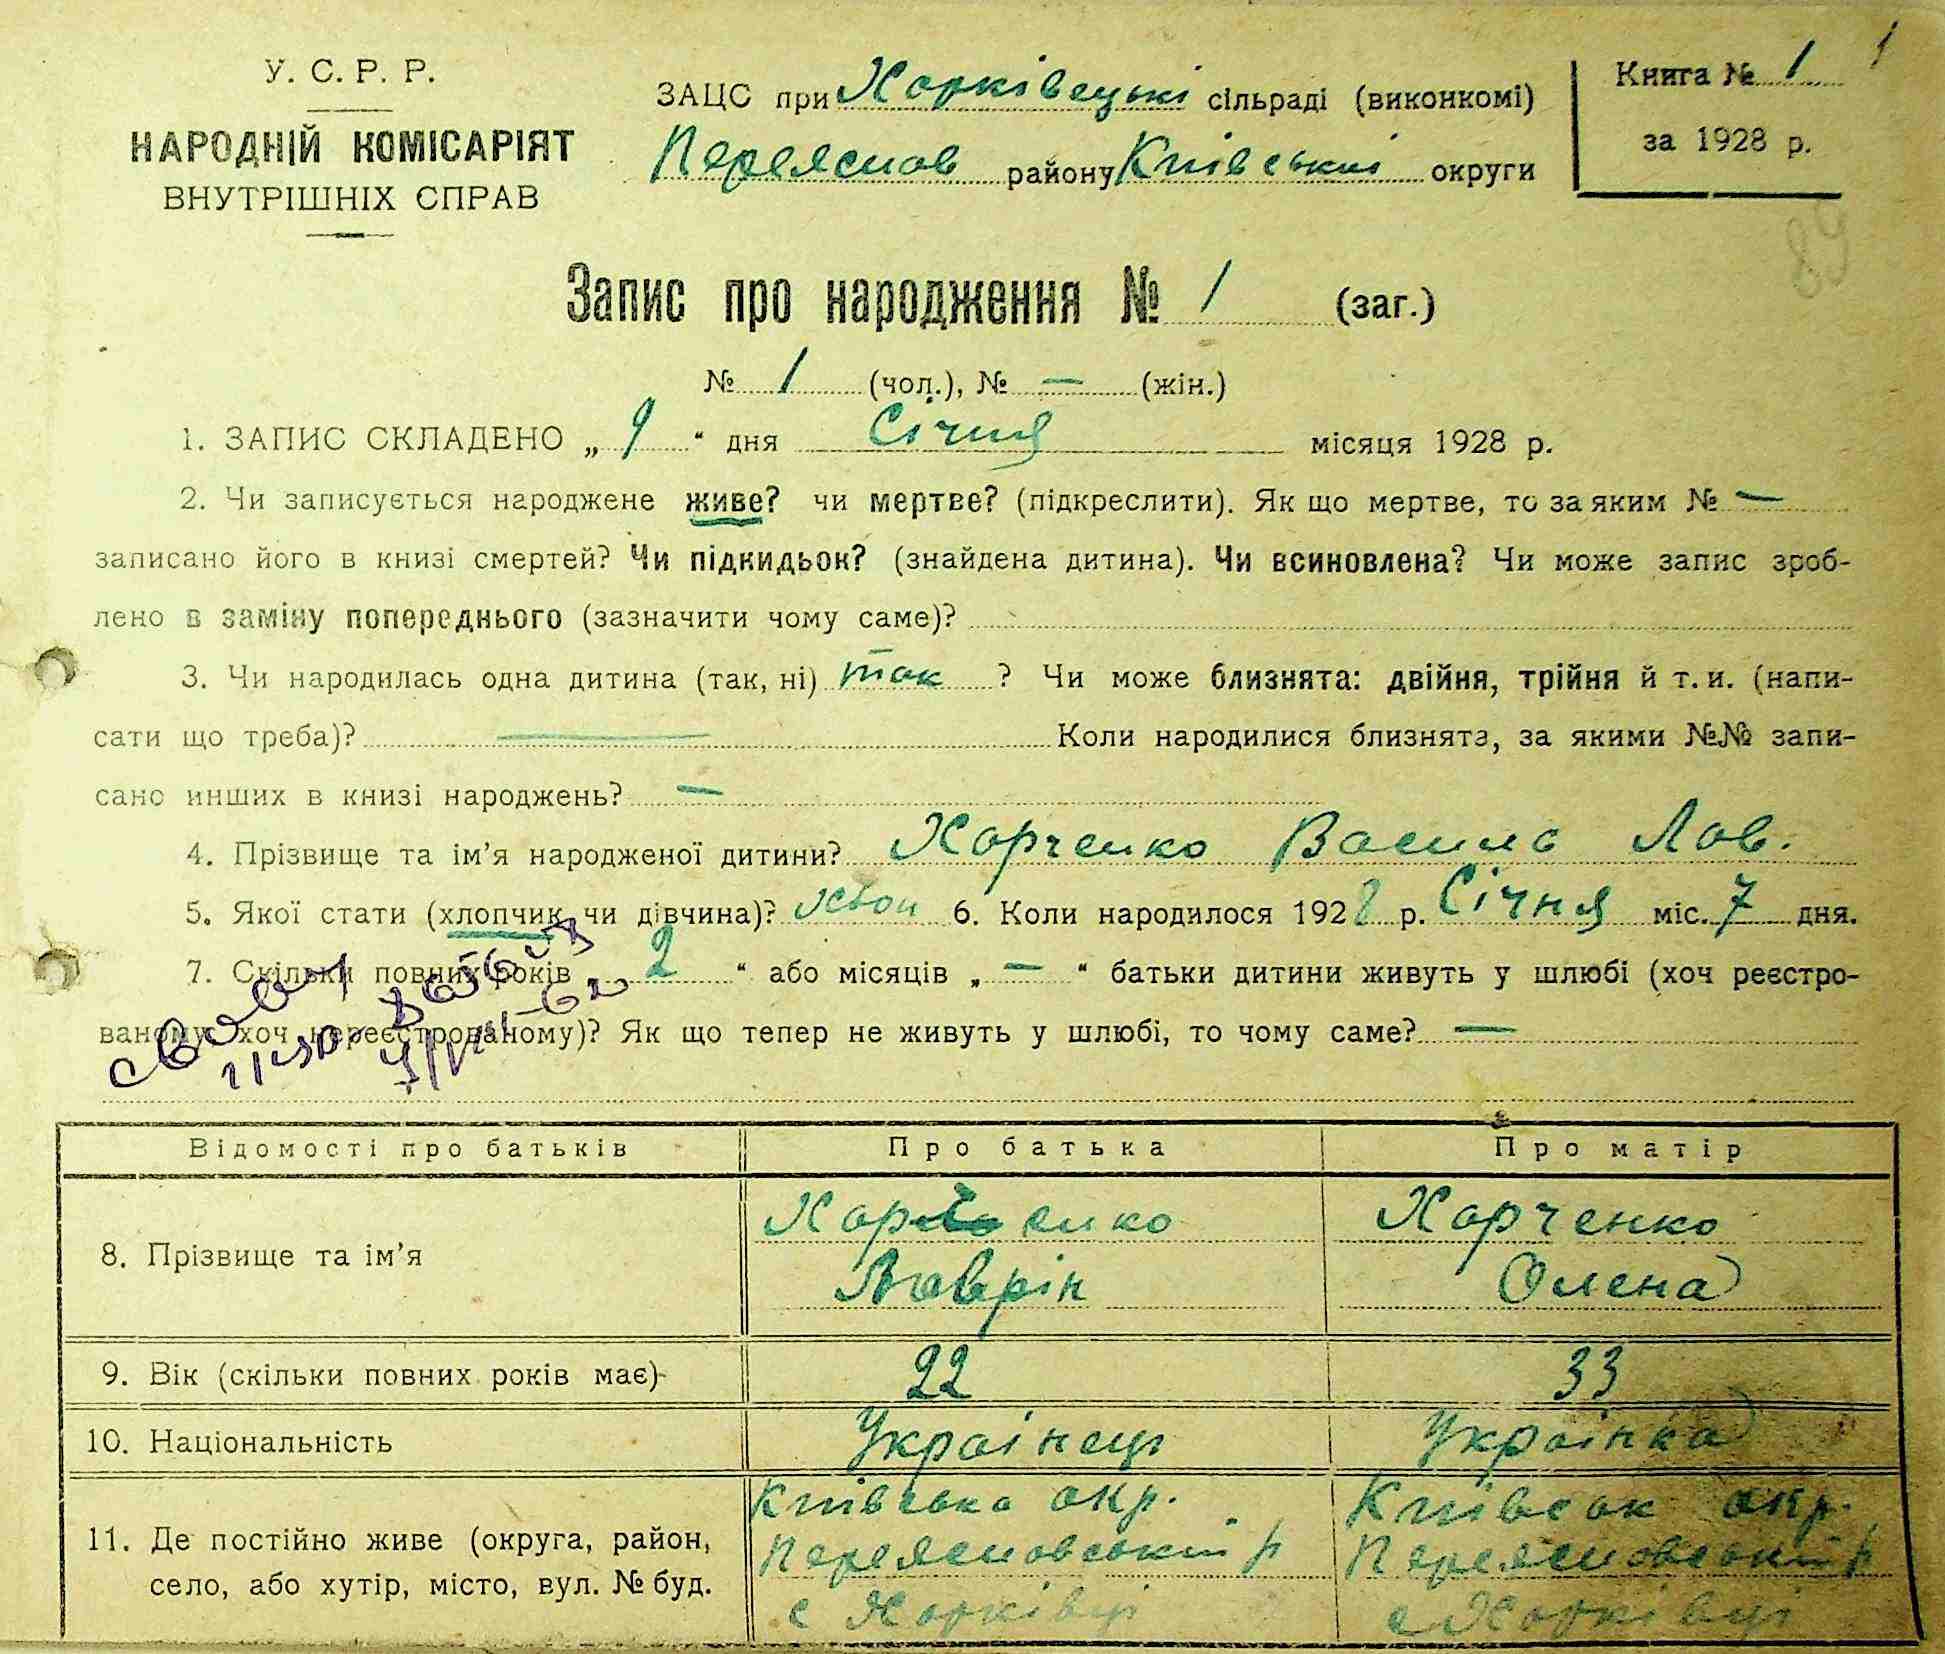 У. С. Р. Р.
НАРОДНІЙ КОМІСАРІЯТ
ВНУТРІШНІХ СПРАВ
ЗАЦС при Харківецькі сільраді (виконкомі)
Переяслов району Київські округи
Книга № 1
за 1928 р.
1
Запис про народження № 1 (заг.)
№ 1 (чол.), № — (жін.)
1. ЗАПИС СКЛАДЕНО „ 9 “ дня Січня місяця 1928 р.
2. Чи записується народжене живе? чи мертве? (підкреслити). Як що мертве, то за яким № —
записано його в книзі смертей? Чи підкидьок? (знайдена дитина). Чи всиновлена? Чи може запис зроб-
лено в заміну попереднього (зазначити чому саме)?
3. Чи народилась одна дитина (так, ні) так ? Чи може близнята: двійня, трійня й т. и. (напи-
сати що треба)? — Коли народилися близнята, за якими №№ запи-
сано инших в книзі народжень? —
4. Прізвище та ім’я народженої дитини? Харченко Василь Лав.
5. Якої стати (хлопчик чи дівчина)? 6. Коли народилося 1928 р. Січня міс. 7 дня.
7. Скільки повних років 2 “ або місяців „ — “ батьки дитини живуть у шлюбі (хоч реєстро-
ваному, хоч нереєстрованому)? Як що тепер не живуть у шлюбі, то чому саме? —
Відомості про батьків Про батька Про матір
8. Прізвище та ім’я Харченко Харченко
Лаврін Олена
9. Вік (скільки повних років має) 22 33
10. Національність Українець Українка
11. Де постійно живе (округа, район, село, або хутір, місто, вул. № буд.
Київська окр. Київськ окр.
Переясловський р Переясловський р
с Харківці с Харківці